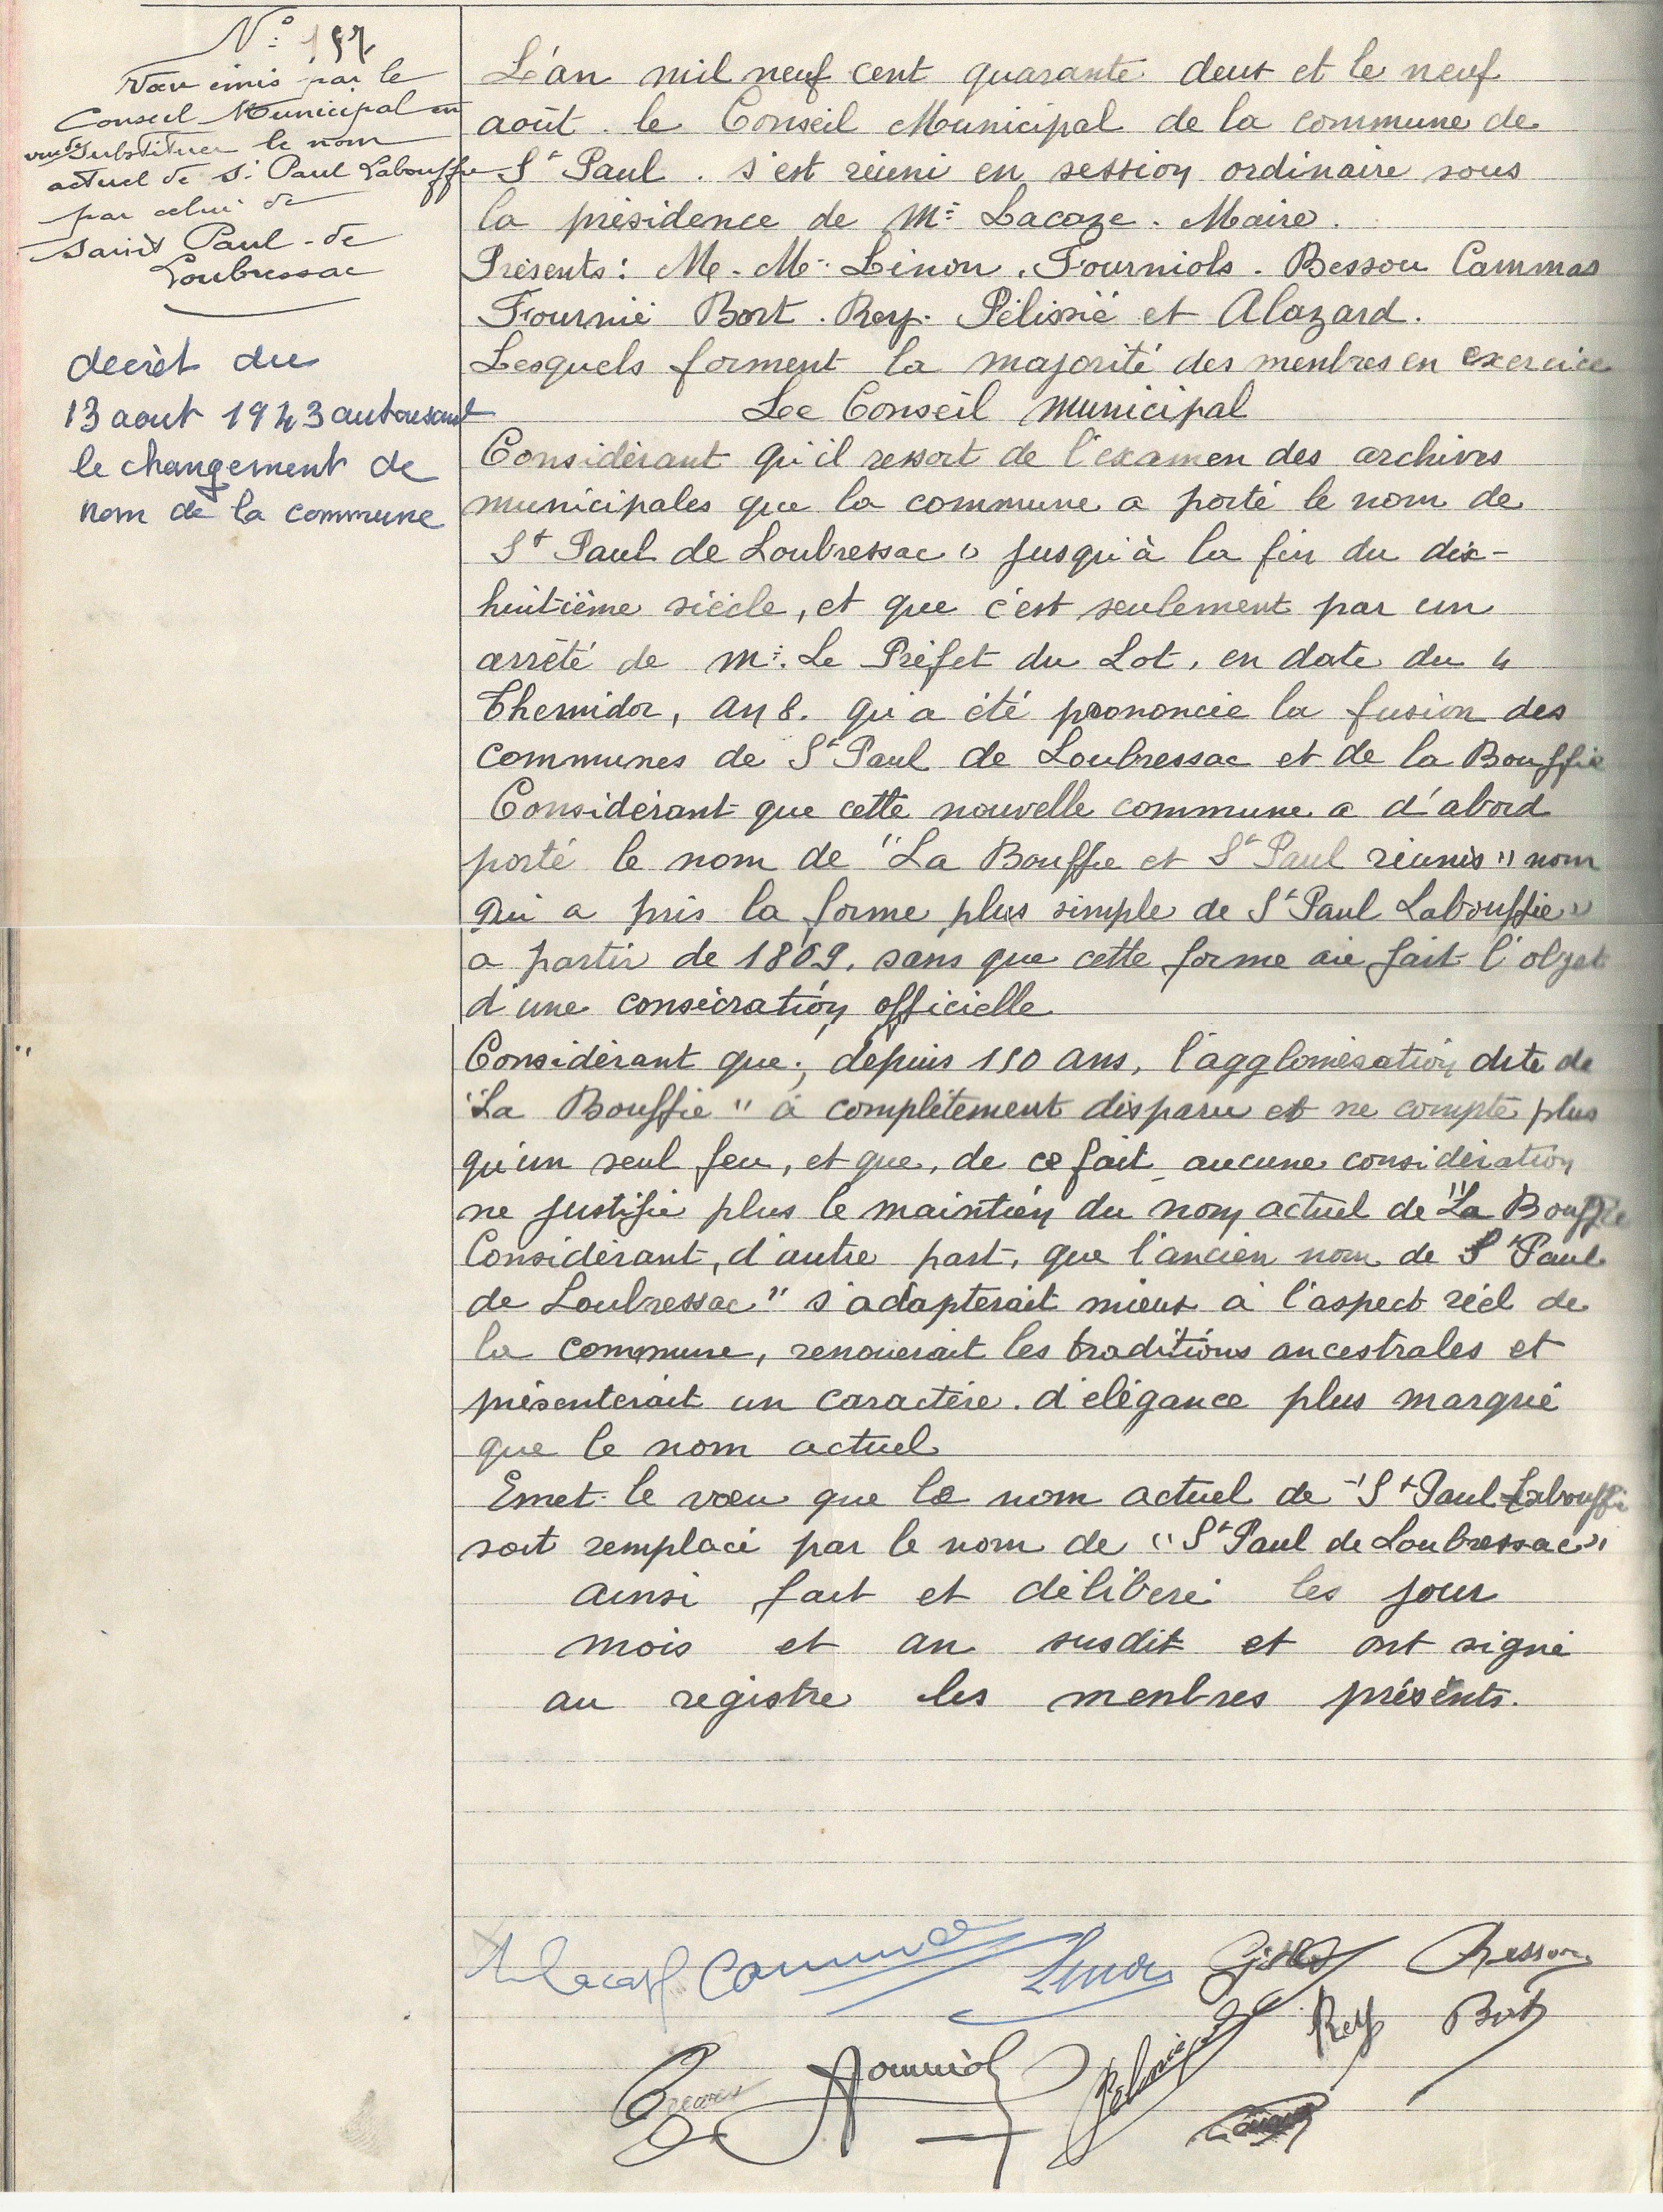 N°: 157
Vœu émis par le
Conseil Municipal en
vue de substituer le nom
actuel de St Paul Labouffie
par celui de
Saint Paul-de
Loubressac
décrèt du
13 aout 1943 autorisant
le changement de
nom de la commune
L'an mil neuf cent quarante deux et le neuf
août. le Conseil Municipal de la commune de
St Paul. s'est réuni en session ordinaire sous
la présidence de Mr Lacaze. Maire.
Présents: M.M. Linon. Fourniols. Bessou Cammas
Fournié Bort. Rey. Pélissié et Alazard.
Lesquels forment la majorité des menbres en exercice
Le Conseil municipal
Considérant qu'il ressort de l'examen des archives
municipales que la commune a porté le nom de
St Paul de Loubressac" jusqu'à la fin du dix-
huitième siècle, et que c'est seulement par un
arrêté de Mr. Le Préfet du Lot, en date du 4
Thermidor, an 8. qu'a été prononcée la fusion des
communes de St Paul de Loubressac et de la Bouffie
Considérant que cette nouvelle commune a d'abord
porté le nom de "La Bouffie et St Paul réunis" nom
qui a pris la forme plus simple de St Paul Labouffie"
a partir de 1809, sans que cette forme aie fait l'objet
d'une consécration officielle
Considérant que, depuis 150 ans, l'agglomération dite de
"La Bouffie" a complètement disparu et ne compte plus
qu'un seul feu, et que, de ce fait aucune considération
ne justifie plus le maintien du nom actuel de "La Bouffie
Considérant, d'autre part, que l'ancien nom de St Paul
de Loubressac" s'adapterait mieux à l'aspect réel de
la commune, renouerait les traditions ancestrales et
présenterait un caractère d'élégance plus marqué
que le nom actuel
Emet le vœu que le nom actuel de "St Paul Labouffie
soit remplacé par le nom de "St Paul de Loubressac"
ainsi fait et délibéré les jour
mois et an susdit et ont signé
au registre les menbres présents.
Lacaze Cammas Linon Bessou
Rey Bort
Fourniol Pelissié